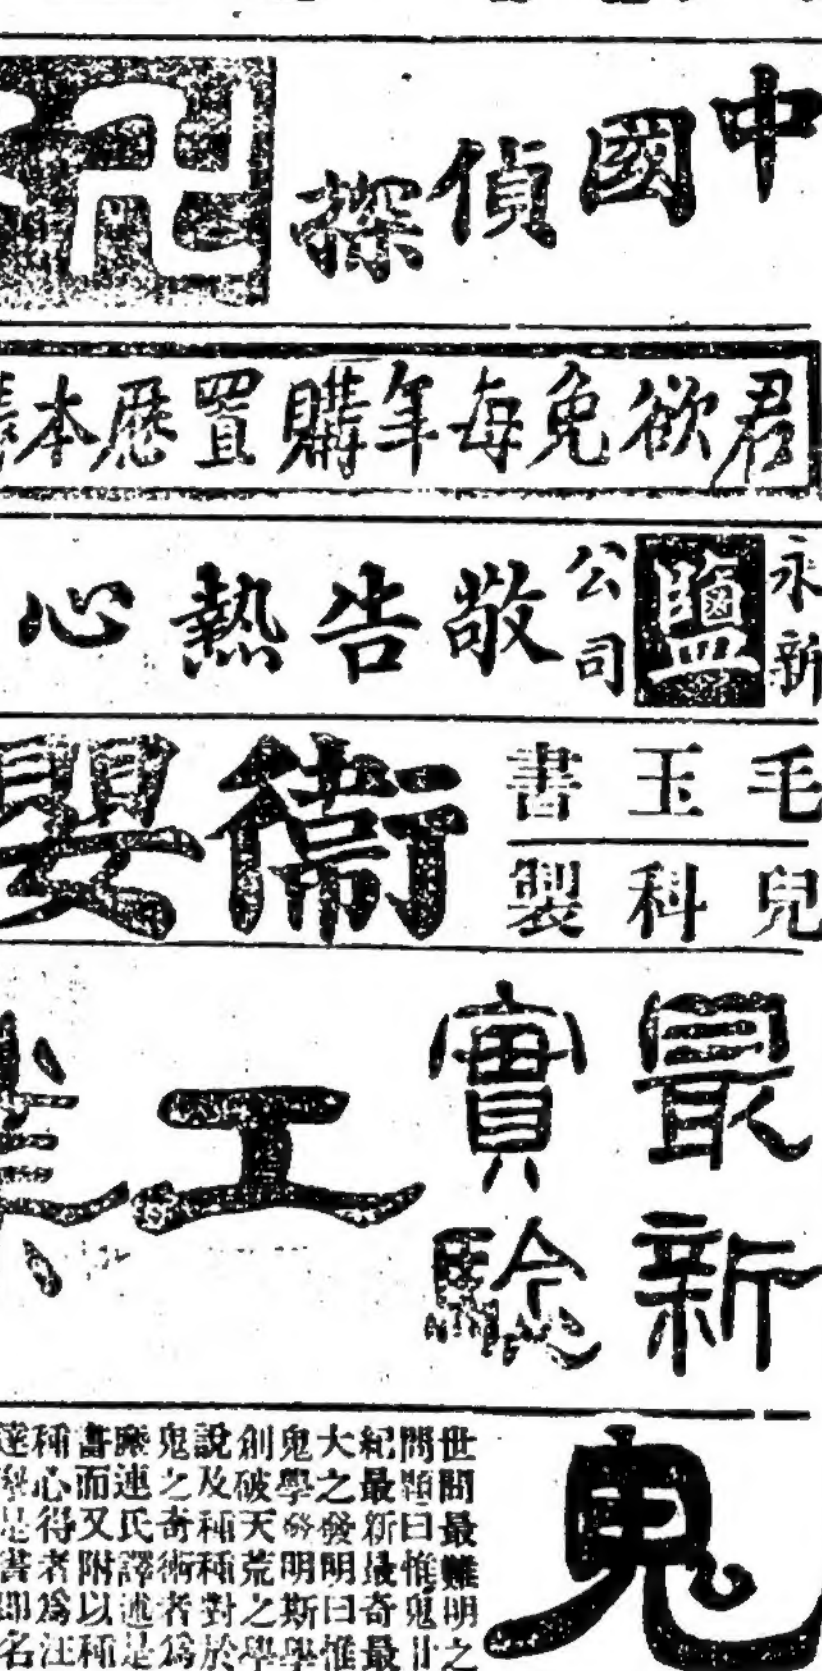 中國偵探卍
君欲免每年購置歷本
永新
鹽
公司
敬告熱心
毛玉書
兒科製
衛嬰
最新
實驗
工業
鬼
世間最難明之
問題曰惟鬼廿
紀最新最奇最
大之發明曰惟
鬼學發明斯學
創破天荒之學
說及種種對於
鬼之奇術者為
廉連氏譯述是
書而又附以種
種心得者為汪
達摩是書即名